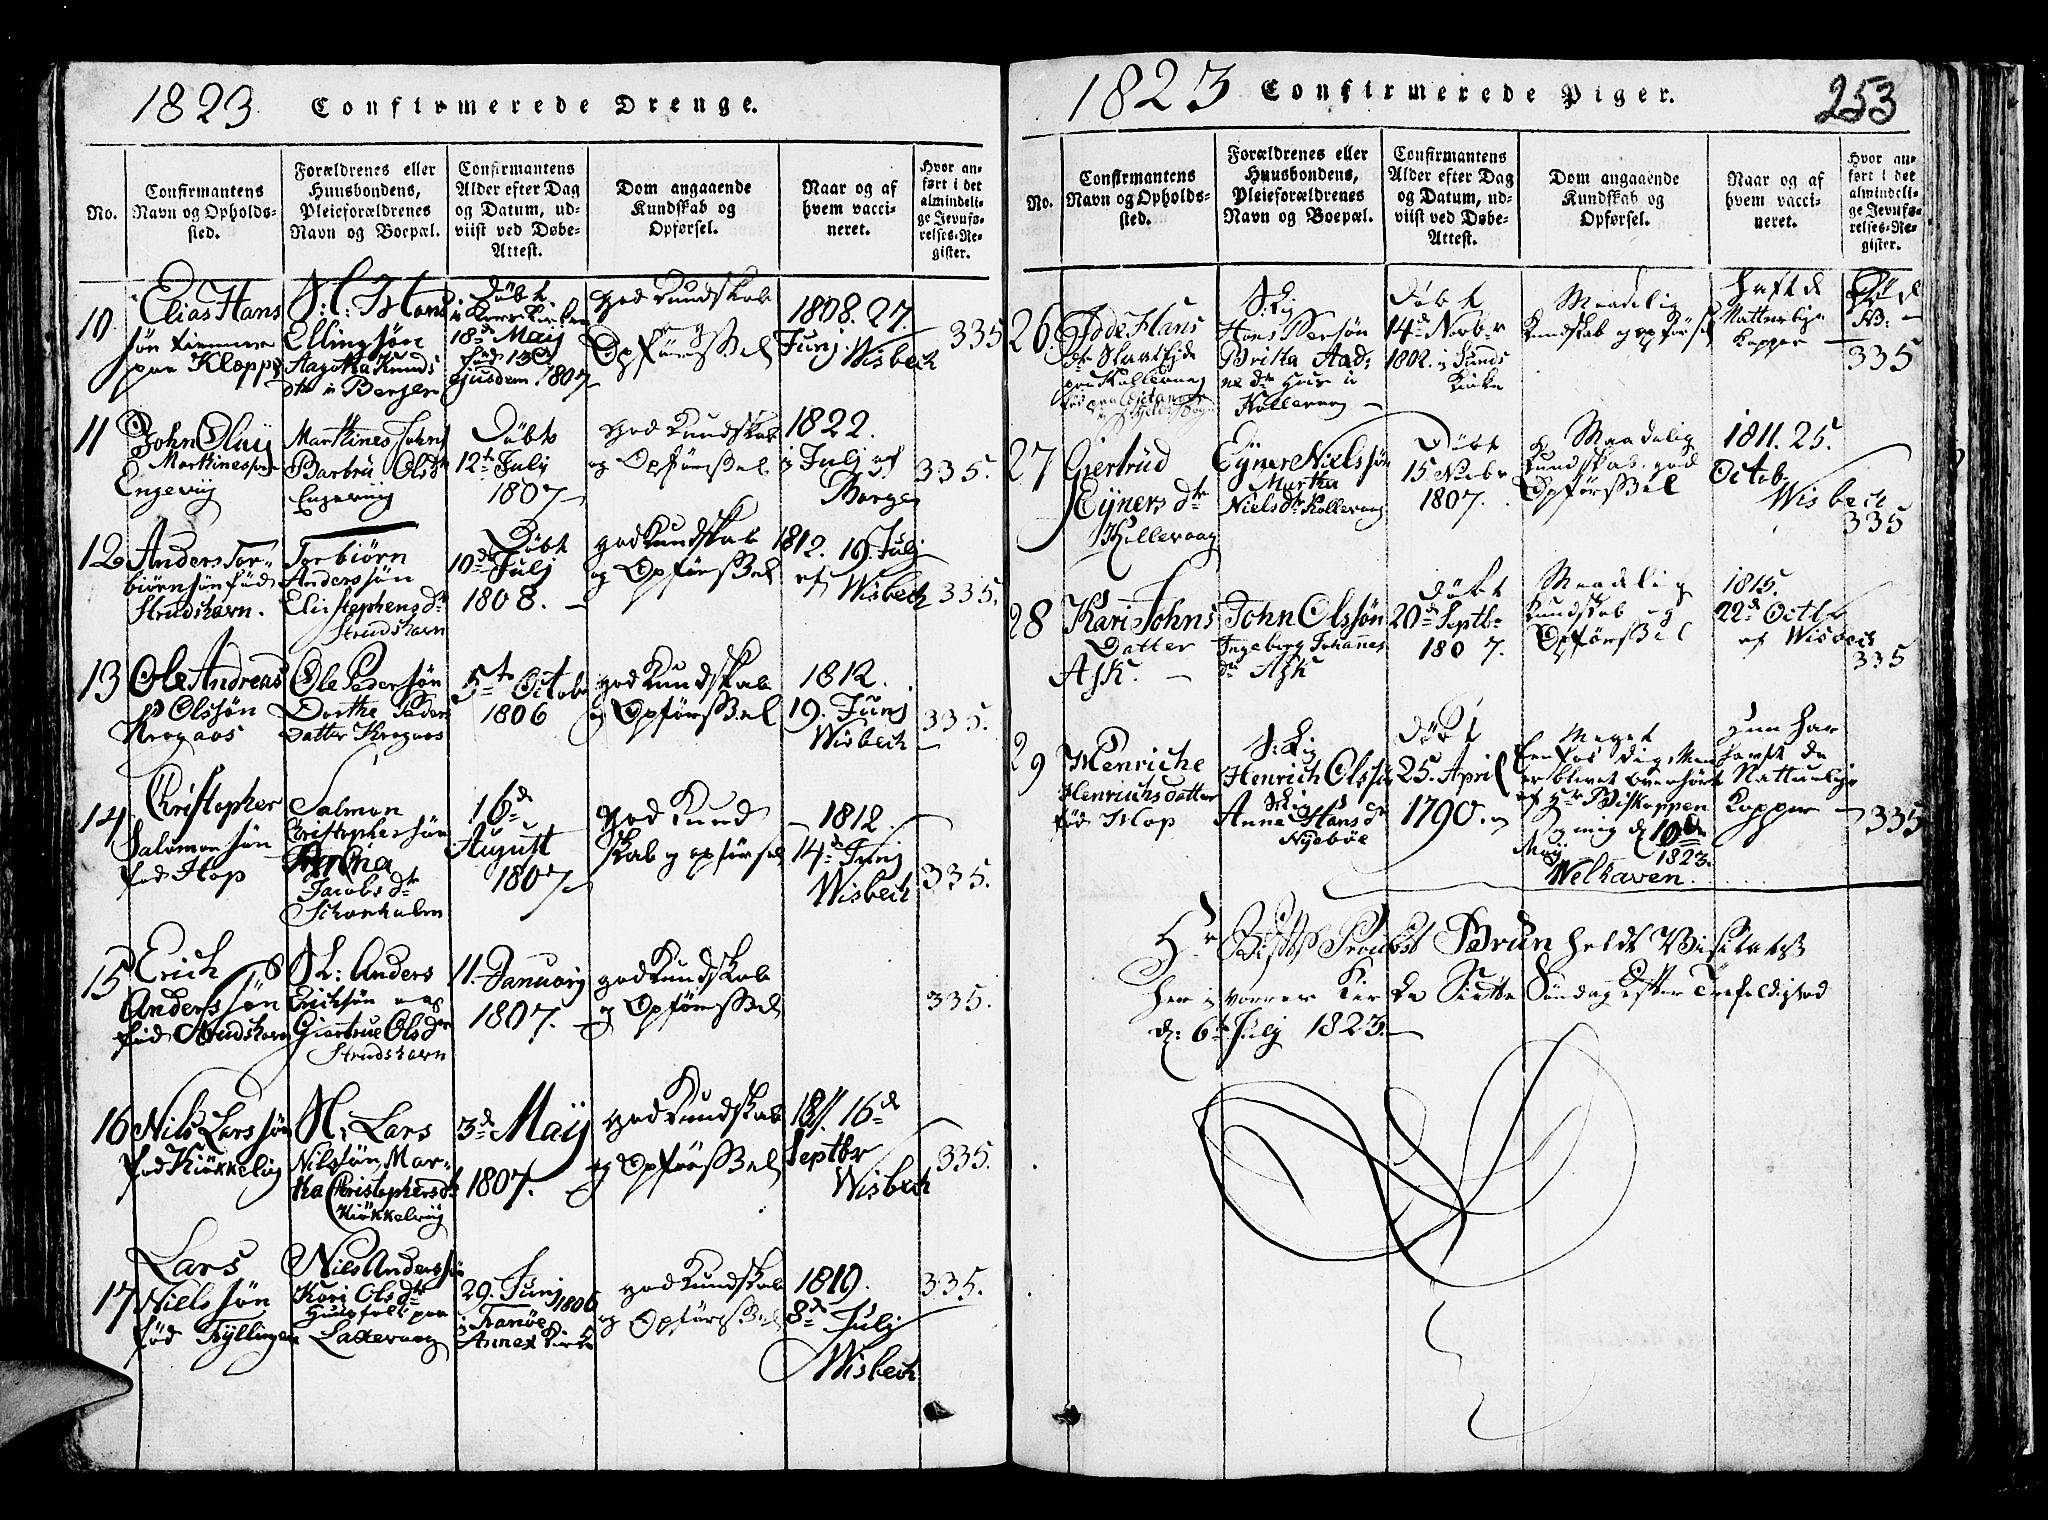 1823. Confirmerede Drenge.
No.
Confirmantens
Navn og Opholds-
sted.
Forældrenes eller
Huusbondens,
Pleieforældrenes
Navn og Boepæl.
Confirmantens
Alder efter Dag
og Datum, ud-
viist ved Døbe-
Attest.
Dom angaaende
Kundskab og
Opførsel.
Naar og af
hvem vacci-
neret.
Hvor an-
ført i det
almindeli-
ge Jevnfø-
relses-Re-
gister.
10.
Elias Hans
søn
paa Klopp
Ellingsøn
Aagotha Knuds
dtr i Bergen
Døbt
18de May
ejusdem 1807
god Kundskab
og
Opførssel
1808. 27.
Junj. Wisbech
335
11
John Oluj
Martinessøn
Engevig
Martines Johns
Barbru Olsdtr
Engevig
Døbt
12te July
1807
god Kundskab
og Opførssel
1822.
i Julj af
Borgen
335.
12
Anders Tor-
biørnsøn fød
Strudshavn.
Torbiørn
Anderssøn
Eli Stephens dtr
Strudshavn
Døbt
10de Julj
1808.
god Kundskab
og Opførssel
1812. 19. Julj
af Wisbech
335.
13
Ole Andreas
Olssøn
Krogaas
Ole Pedersøn
Dorthe Peders
Datter Krogaas
5te Octobr
1806
god Kundskab
og Opførssel
1812.
19. Junj
Wisbech
335.
14
Christopher
Salomonsøn
fød Hop
Salmon
Christophersøn
Jacobs dtr
16de
August
1807
god Kund
skab og opførsel
1812.
14de Junj
Wisbech
335.
15
Erich
Anderssøn
fød Strudshavn
Sl: Anders
Ericksøn og
Giertrue Olsdtr
Strudshavn
11. Januarij
1807.
god Kundskab
og Opførssel
335.
16
Nils Larssøn
fød Kiøkkelvig
Lars
Nilssøn Mar-
tha Christophersdtr
Kiøkkelvig
3de Maÿ
1807.
god Kundskab
og Opførssel
1811. 16de
Septbr
Wisbech
335.
17
Lars
Nielssøn
fød Tyllingen
Nils Anderssøn
Kari Olsdtr
Huusfolk paa
Laxevaag
29. Junj 1806
i Fanøe
Annex Kirke
god Kundskab
og Opførssel
1819.
8de Julj
Wisbech
335.
1823 Confirmerede Piger.
253
No.
Confirmantens
Navn og Opholds-
sted.
Forældrenes eller
Huusbondens,
Pleieforældrenes
Navn og Boepæl.
Confirmantens
Alder efter Dag
og Datum, ud-
viist ved Døbe-
Attest.
Dom angaaende
Kundskab og
Opførsel.
Naar og af
hvem vacci-
neret.
Hvor an-
ført i det
almindeli-
ge Jevnfø-
relses-Re-
gister.
26
Hans
dtr
paa Kollevaag
Hans
Britha Aad-
ne dtr
Kollevaag
Døbt
14de Novbr
1802. i Sunds
Kirke
Maadelig
Kundskab og opførsel
hafte de
Naturlige
Kopper
335
27
Giertrud
Eyners dtr
Kollevaag
Eyner Nielssøn
Martha
Niels dtr Kollevaag
Døbt
15 Novbr
1807.
Maadelig
Kundskab. god
Opførssel
1811. 25.
Octob.
Wisbech
335
28
Kari Johns
Datter
Ask.
John Olssøn
Ingeborg Johannes
dtr Ask
døbt
20de Septbr
1807.
Maadelig
Kundskab og
Opførssel
1815.
22de Octbr
af Wisbech
335
29
Henriche
Henrichsdatter
fød Hop
Henrich Olssøn
Anna Hans dtr
Nyebøe
Døbt
25. April
1790.
Meget
Eenfoldig, Men
er blevet overhørt
af Hr Biskoppen
og mig d 10de
Maij 1823.
Welhaven.
Hun har
havt de
Naturlige
Kopper
335
Hr Provst Brun holdt Visitats
her i vorres Kirke Siette Søndag efter Trefoldighed
d: 6te Julj 1823.